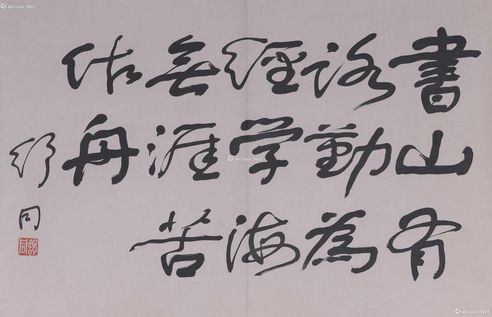 書山有
路勤為
徑学海
無涯苦
作舟
舒同
Artron.Net